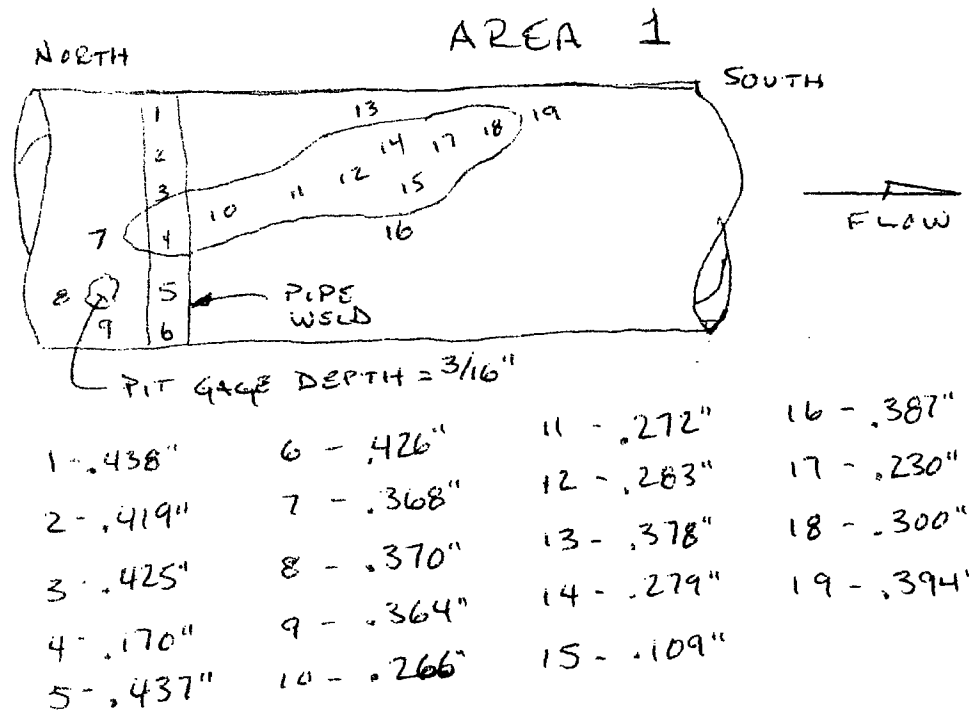 AREA 1
NORTH
SOUTH
1
13
19
14
17
18
2
12
3
11
15
10
7
4
16
FLOW
8
5
PIPE
WELD
9
6
PIT GAGE DEPTH = 3/16"
1 - .438"
2 - .419"
3 - .425"
4 - .170"
5 - .437"
6 - .426"
7 - .368"
8 - .370"
9 - .364"
10 - .266"
11 - .272"
12 - .283"
13 - .378"
14 - .279"
15 - .109"
16 - .387"
17 - .230"
18 - .300"
19 - .394"